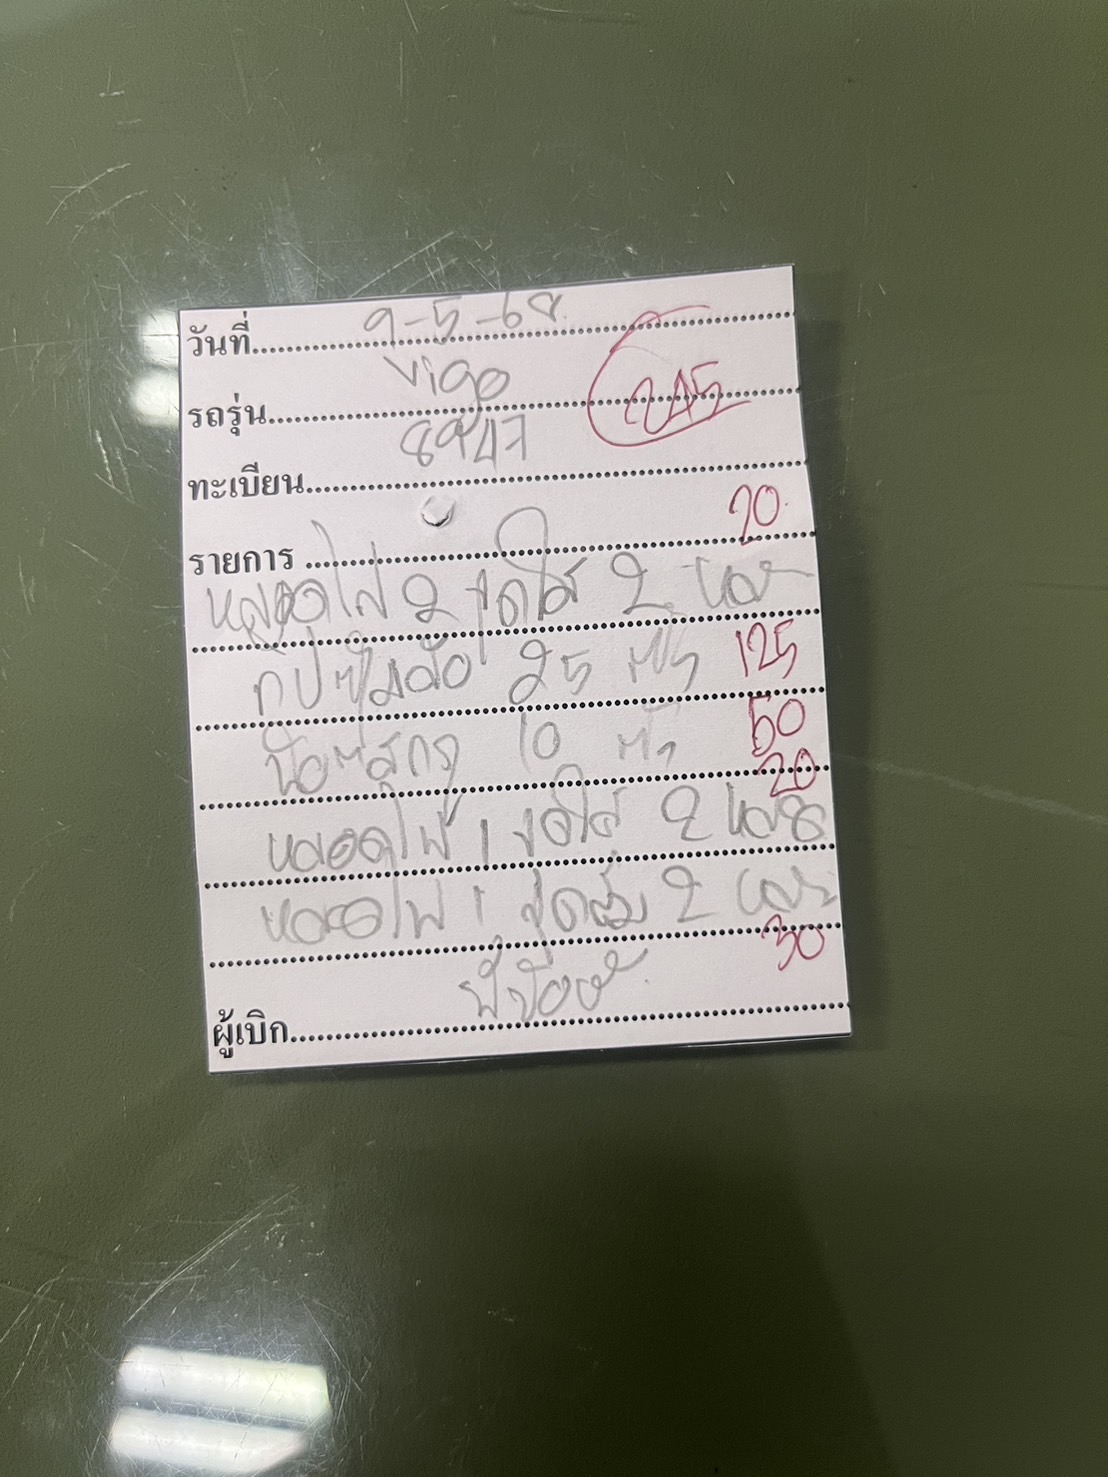 วันที่ 9-5-68
รถรุ่น Vigo
245
ทะเบียน 8947
รายการ
20
หลอดไฟ 2 จุดใส 2 หลอด
กิ๊ปซุ้มล้อ 25 ตัว 125
น๊อตสกรู 10 ตัว 50
20
หลอดไฟ 1 จุดใส 2 หลอด
หลอดไฟ 1 จุดส้ม 2 หลอด
30
ผู้เบิก